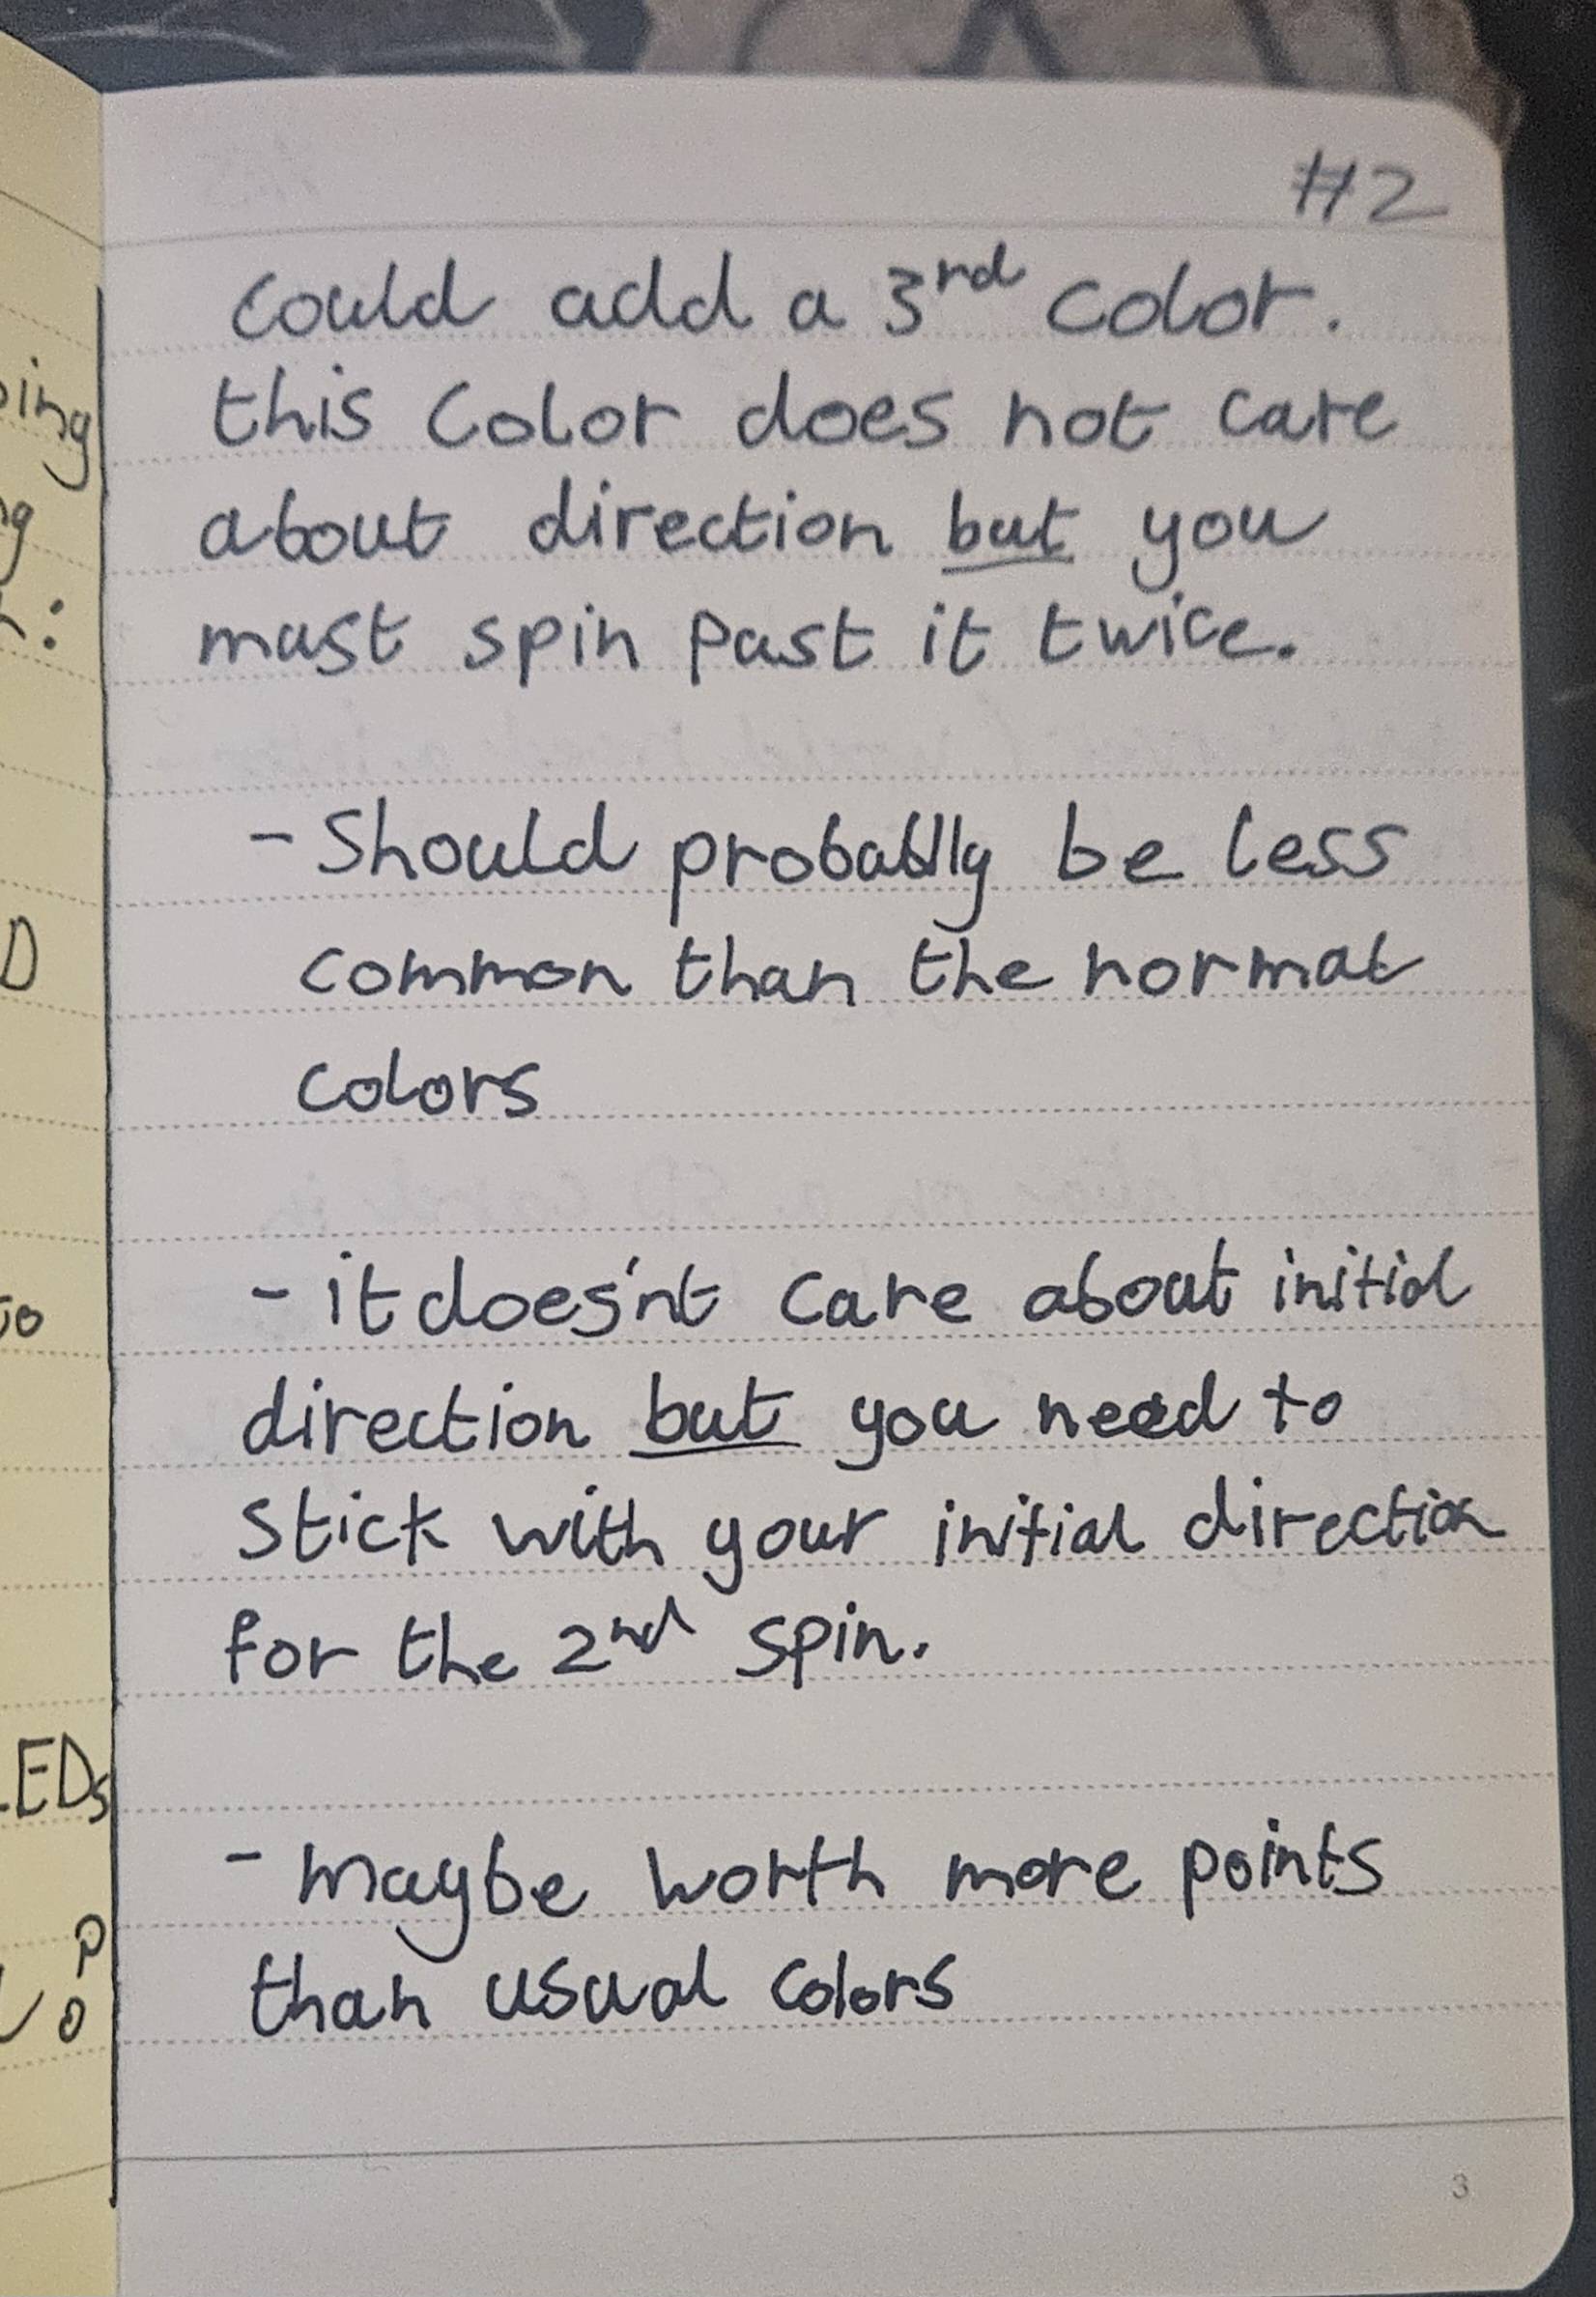 #2
could add a 3rd color.
this color does not care
about direction but you
must spin past it twice.
- Should probablly be less
common than the normal
colors
- it does'nt care about initial
direction but you need to
stick with your initial direction
for the 2nd spin.
- maybe worth more points
than usual colors
3
ing
D
EDs